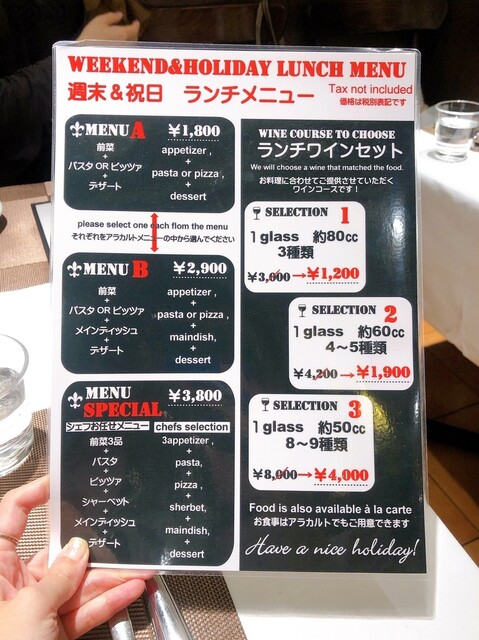 WEEKEND&HOLIDAY LUNCH MENU
週末＆祝日 ランチメニュー
Tax not included
価格は税別表記です
MENU A ¥1,800
前菜
+
パスタ OR ピッツァ
+
デザート
appetizer ,
+
pasta or pizza ,
+
dessert
please select one each flom the menu
それぞれをアラカルトメニューの中から選んでください
MENU B ¥2,900
前菜
+
パスタ OR ピッツァ
+
メインディッシュ
+
デザート
appetizer ,
+
pasta or pizza ,
+
maindish,
+
dessert
MENU SPECIAL ¥3,800
シェフお任せメニュー
chefs selection
前菜3品
+
パスタ
+
ピッツァ
+
シャーベット
+
メインディッシュ
+
デザート
3appetizer ,
+
pasta,
+
pizza ,
+
sherbet,
+
maindish,
+
dessert
WINE COURSE TO CHOOSE
ランチワインセット
We will choose a wine that matched the food.
お料理に合わせてご提供させていただく
ワインコースです！
SELECTION 1
1glass 約80cc
3種類
¥3,000→¥1,200
SELECTION 2
1glass 約60cc
4～5種類
¥4,200→¥1,900
SELECTION 3
1glass 約50cc
8～9種類
¥8,000→¥4,000
Food is also available à la carte
お食事はアラカルトでもご用意できます
Have a nice holiday!